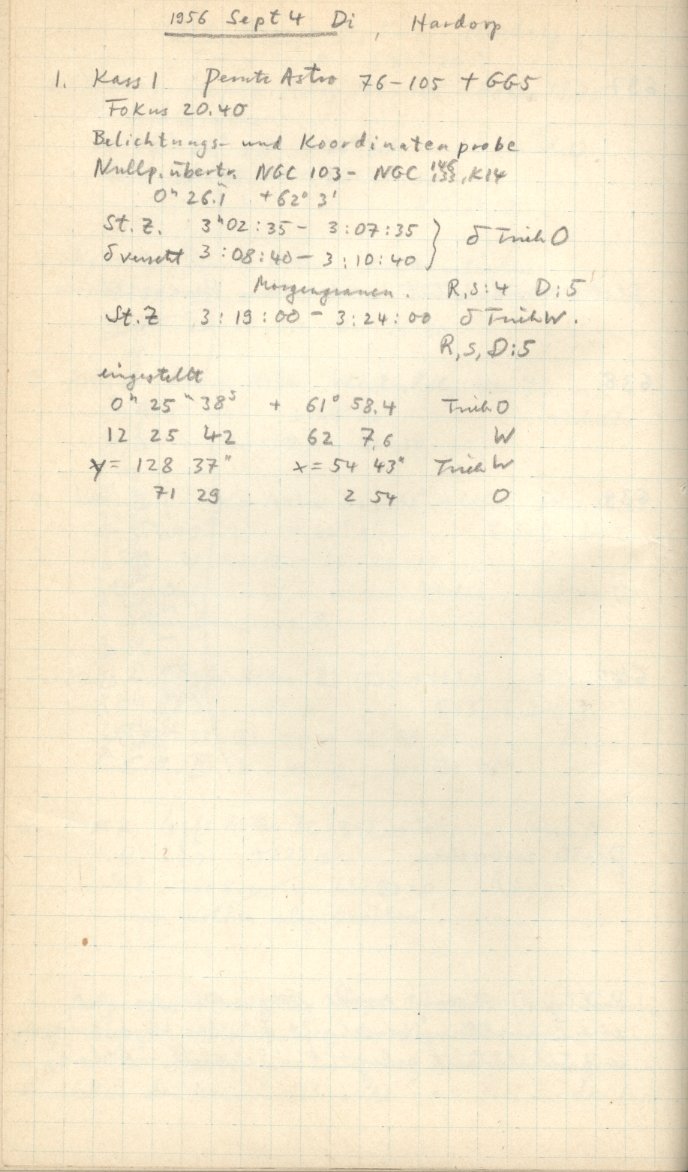 1956 Sept 4 Di, Hardorp
1. Kass 1 Perutz Astro 76-105 + GG5
Fokus 20.40
Belichtungs- und Koordinatenprobe
Nullp. übertr. NGC 103 - NGC 146, K14
0ʰ 26.1ᵐ +62° 3'
St. Z. 3ʰ02:35 - 3:07:35 } δ Trieb O
δ versetzt 3:08:40 - 3:10:40
Morgengrauen. R, S:4 D:5
St. Z 3:19:00 - 3:24:00 δ Trieb W.
R, S, D:5
eingestellt
0ʰ 25ᵐ 38ˢ + 61° 58.4 Trieb O
12 25 42 62 7,6 W
y = 128 37" x = 54 43" Trieb W
71 29 2 54 O